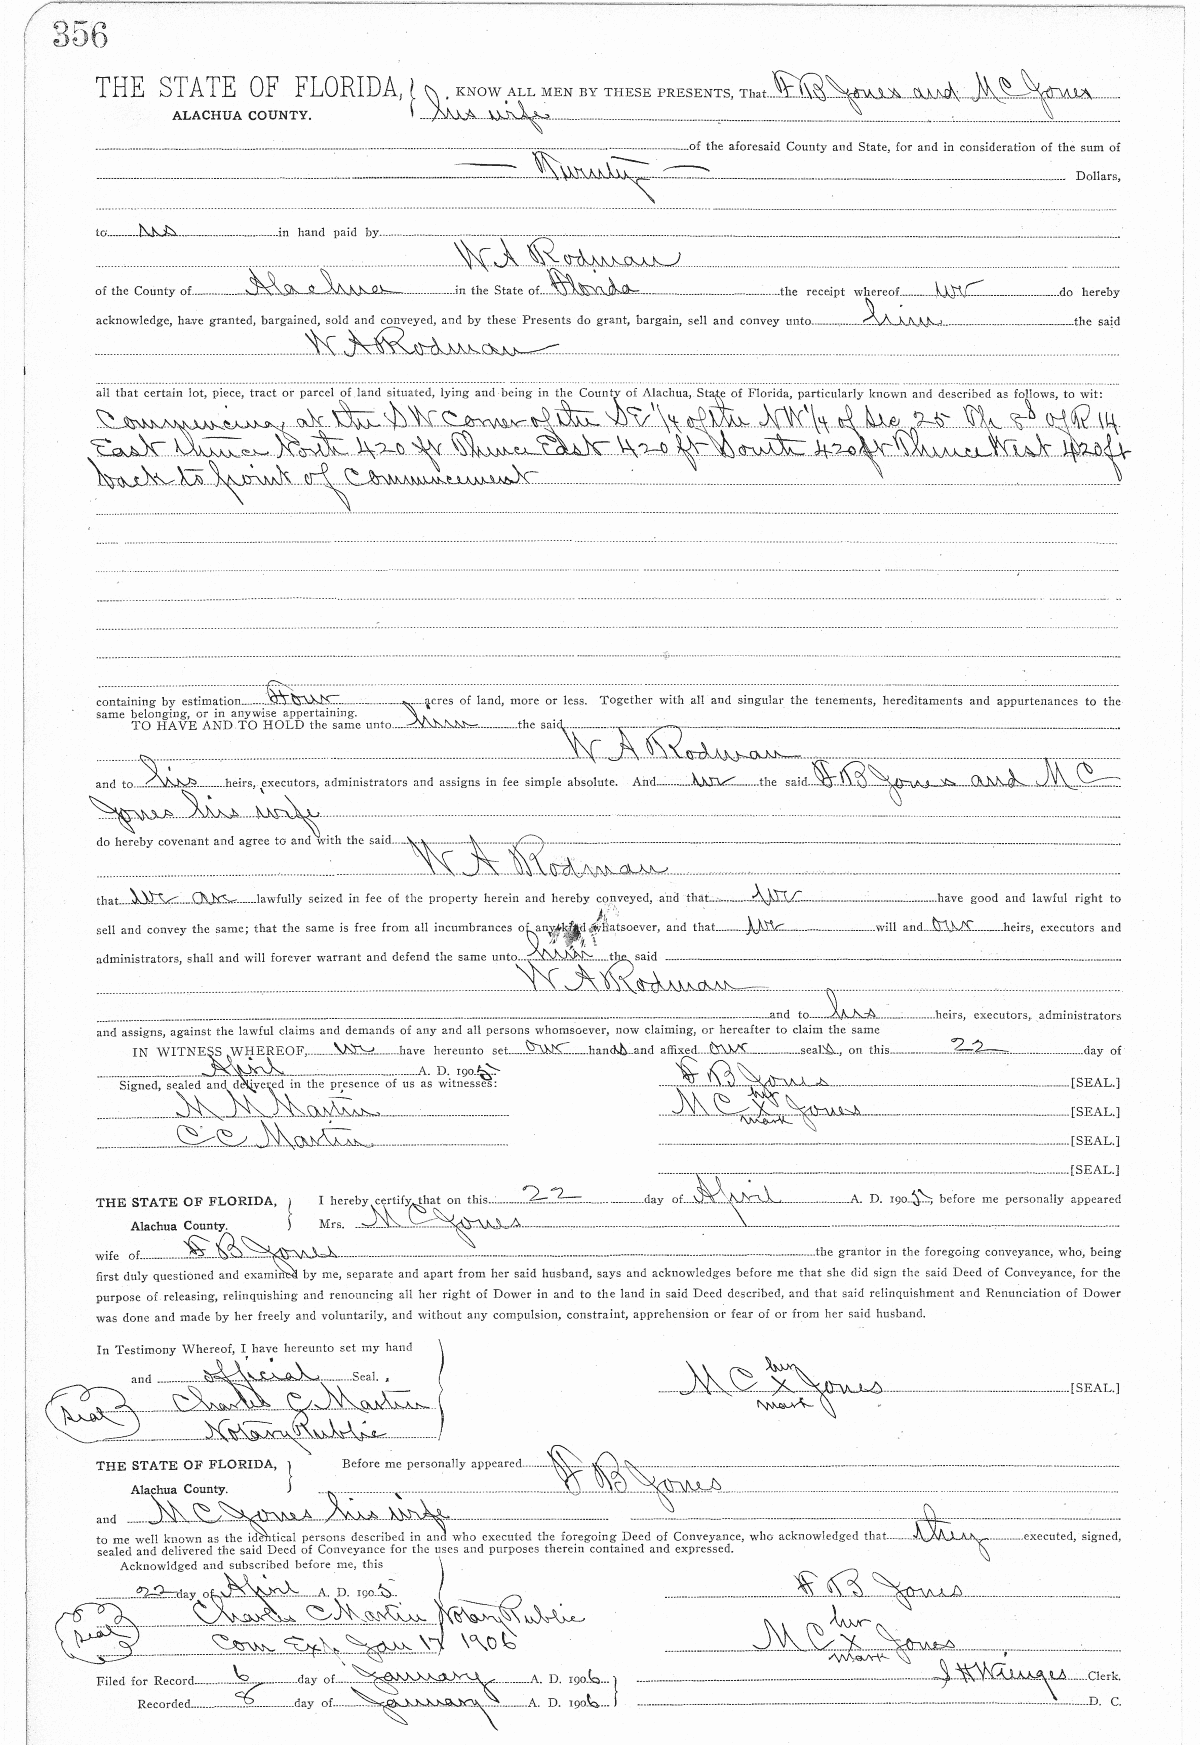 356
THE STATE OF FLORIDA, KNOW ALL MEN BY THESE PRESENTS, That F B Jones and M C Jones
ALACHUA COUNTY. his wife
of the aforesaid County and State, for and in consideration of the sum of
Twenty Dollars,
to us in hand paid by
W A Rodman
of the County of Alachua in the State of Florida the receipt whereof we do hereby
acknowledge, have granted, bargained, sold and conveyed, and by these Presents do grant, bargain, sell and convey unto him the said
W A Rodman
all that certain lot, piece, tract or parcel of land situated, lying and being in the County of Alachua, State of Florida, particularly known and described as follows, to wit:
Commencing at the SW Corner of the SE 1/4 of the NW 1/4 of Sec 25 8 of R 14
East thence North 420 ft Thence East 420 ft South 420 ft Thence West 420 ft
back to point of Commencement
containing by estimation Four acres of land, more or less. Together with all and singular the tenements, hereditaments and appurtenances to the
same belonging, or in anywise appertaining.
TO HAVE AND TO HOLD the same unto him the said
W A Rodman
and to his heirs, executors, administrators and assigns in fee simple absolute. And we the said F B Jones and M C
Jones his wife
do hereby covenant and agree to and with the said
W A Rodman
that we are lawfully seized in fee of the property herein and hereby conveyed, and that we have good and lawful right to
sell and convey the same; that the same is free from all incumbrances of any kind whatsoever, and that we will and our heirs, executors and
administrators, shall and will forever warrant and defend the same unto him the said
W A Rodman
and to his heirs, executors, administrators
and assigns, against the lawful claims and demands of any and all persons whomsoever, now claiming, or hereafter to claim the same
IN WITNESS WHEREOF, we have hereunto set our hands and affixed our seals, on this 22 day of
April A. D. 1905
Signed, sealed and delivered in the presence of us as witnesses: F B Jones [SEAL.]
her
M M Martin M C X Jones [SEAL.]
mark
C C Martin [SEAL.]
[SEAL.]
THE STATE OF FLORIDA, I hereby certify that on this 22 day of April A. D. 1905, before me personally appeared
Alachua County. Mrs. M C Jones
wife of F B Jones the grantor in the foregoing conveyance, who, being
first duly questioned and examined by me, separate and apart from her said husband, says and acknowledges before me that she did sign the said Deed of Conveyance, for the
purpose of releasing, relinquishing and renouncing all her right of Dower in and to the land in said Deed described, and that said relinquishment and Renunciation of Dower
was done and made by her freely and voluntarily, and without any compulsion, constraint, apprehension or fear of or from her said husband.
In Testimony Whereof, I have hereunto set my hand
her
and official Seal. M C X Jones [SEAL.]
mark
Seal Charles C Martin
Notary Public
THE STATE OF FLORIDA, Before me personally appeared F B Jones
Alachua County.
and M C Jones his wife
to me well known as the identical persons described in and who executed the foregoing Deed of Conveyance, who acknowledged that they executed, signed,
sealed and delivered the said Deed of Conveyance for the uses and purposes therein contained and expressed.
Acknowldged and subscribed before me, this
22 day of April A. D. 1905. F B Jones
Seal Charles C Martin Notary Public
her
Com Exp. Jan 17 1906 M C X Jones
mark
Filed for Record 6 day of January A. D. 1906 S H Wienges Clerk.
Recorded 8 day of January A. D. 1906 D. C.